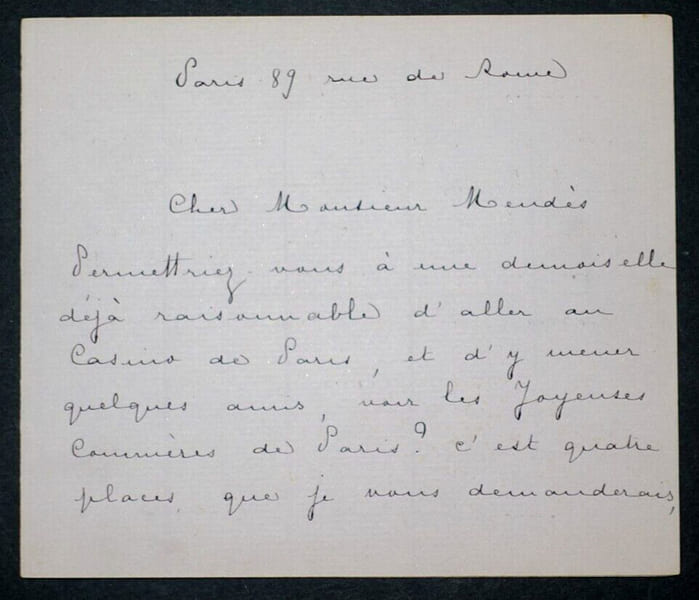 Paris 89 rue de Rome
Cher Monsieur Mendès
Permettriez-vous à une demoiselle
déjà raisonnable d'aller au
Casino de Paris, et d'y mener
quelques amis, voir les Joyeuses
Commères de Paris? c'est quatre
places que je vous demanderais,